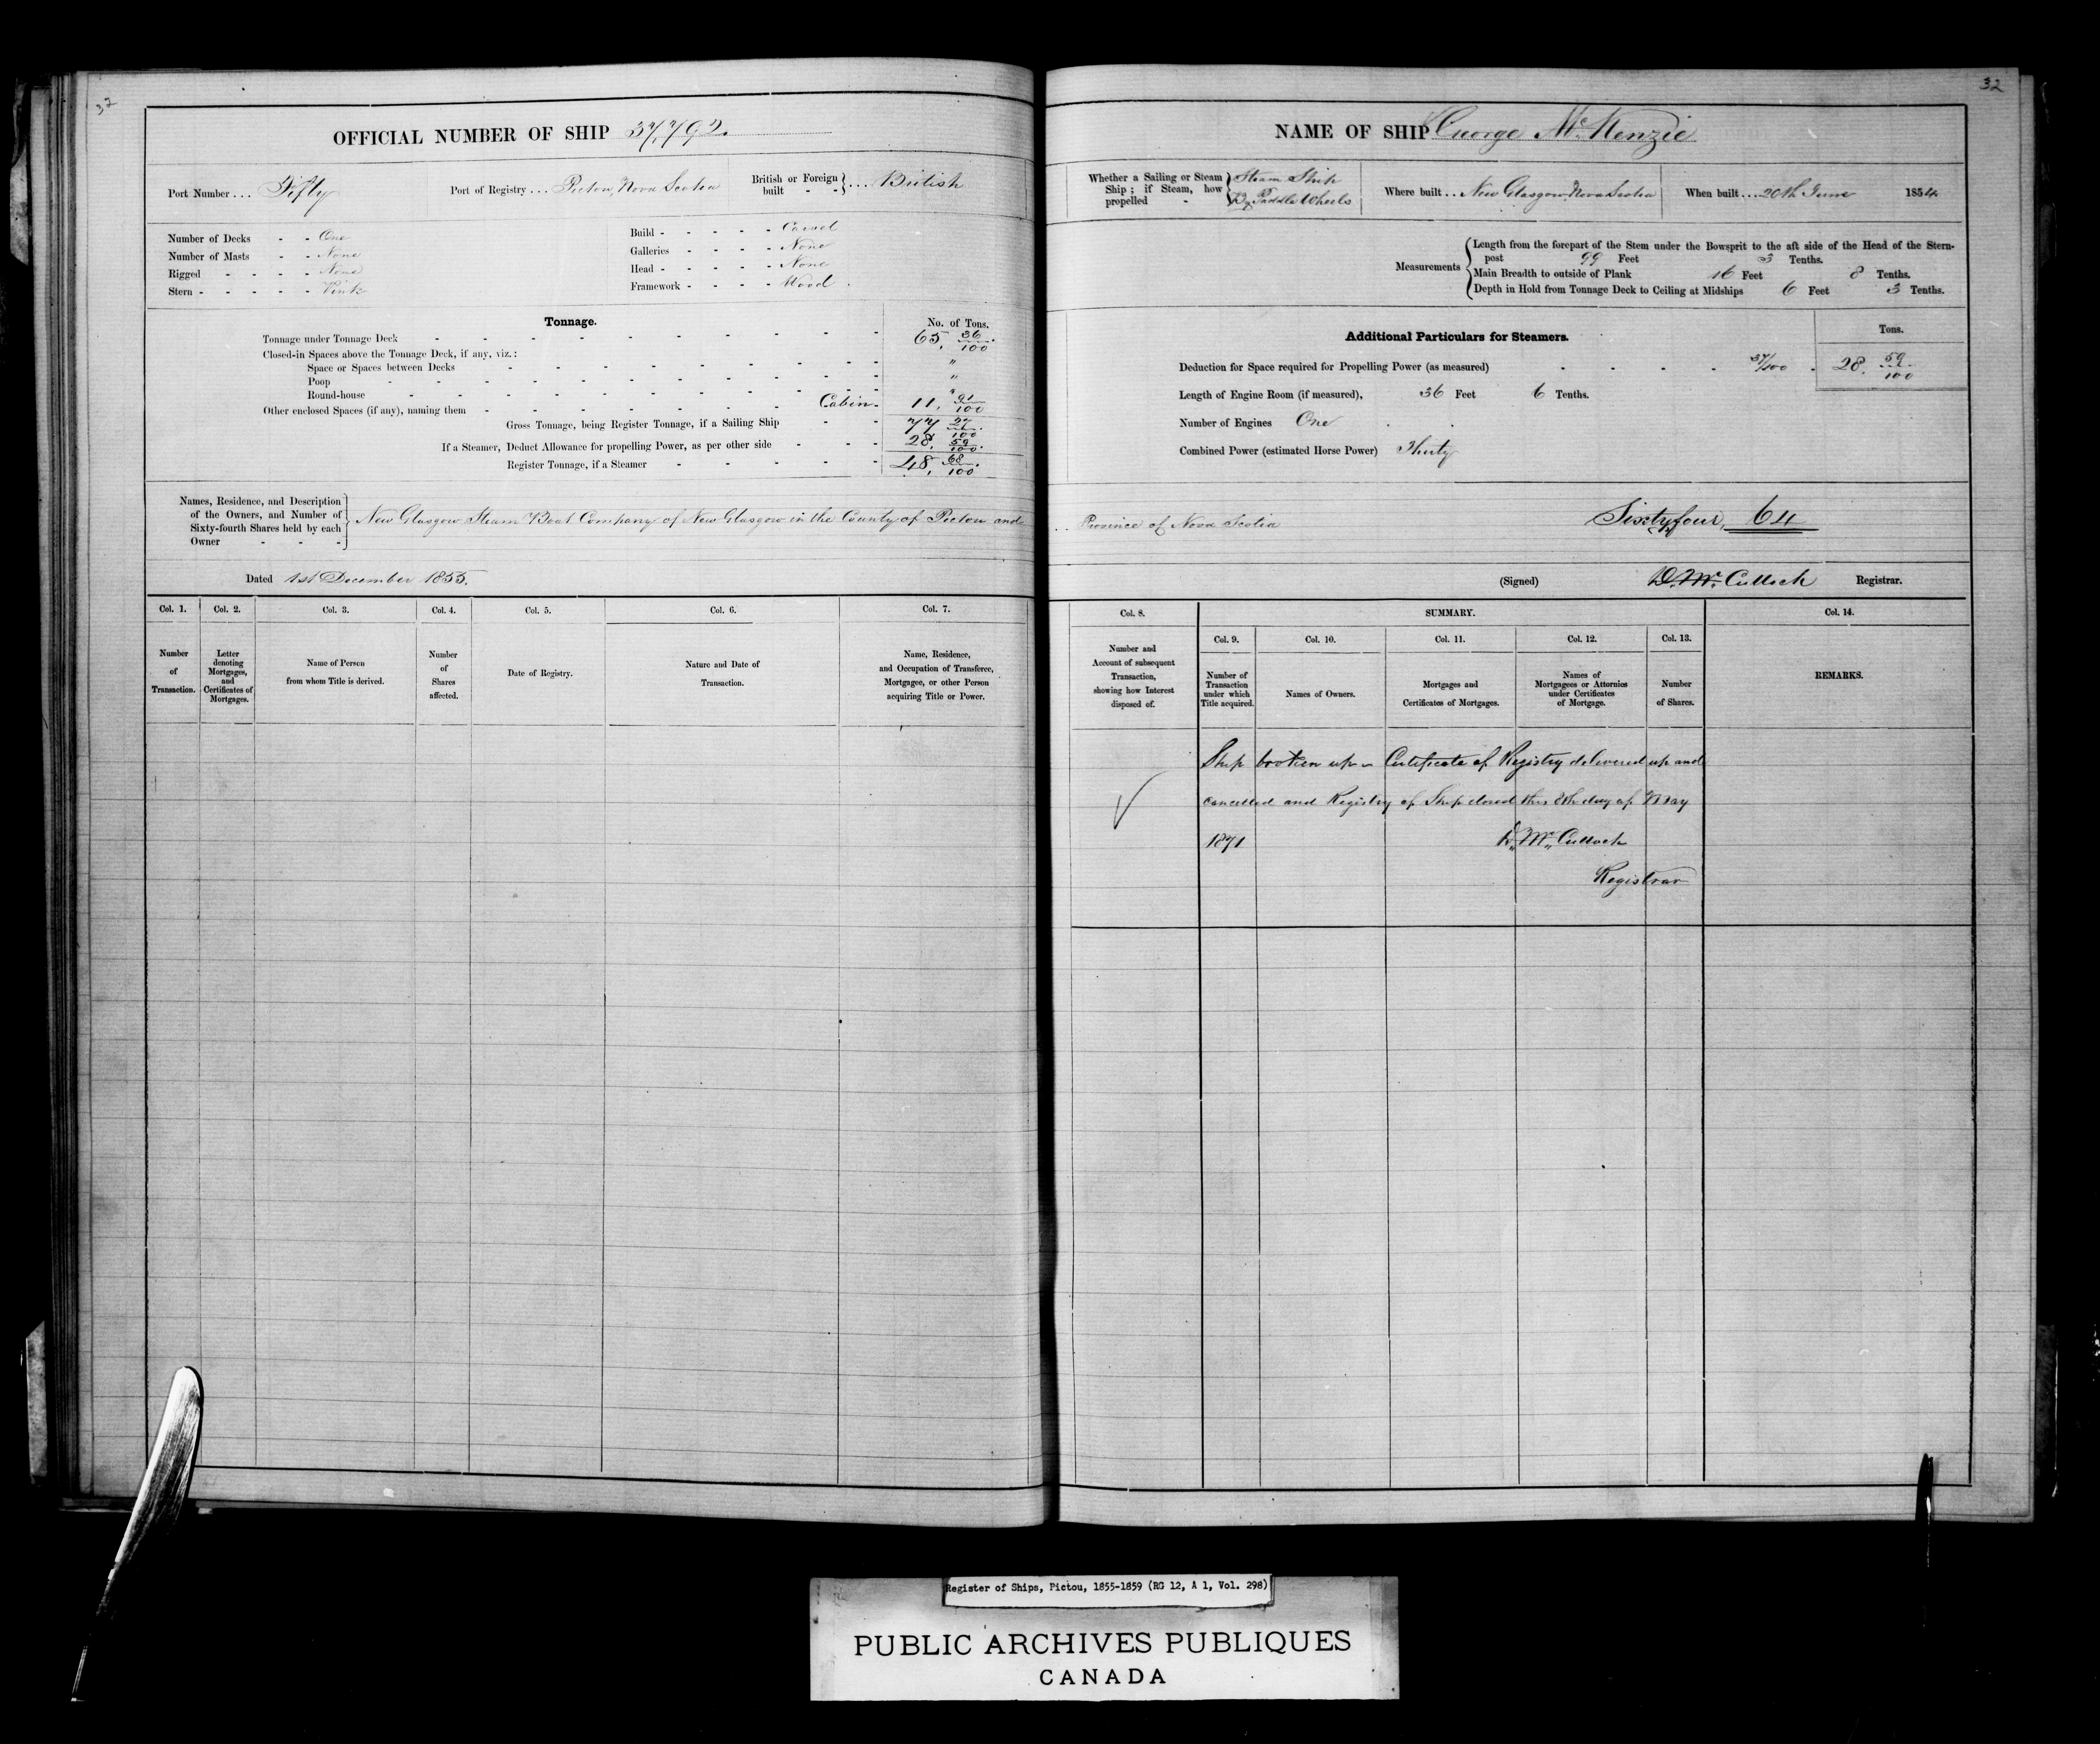 32
OFFICIAL NUMBER OF SHIP 37,792.
Port Number ... Fifty
Port of Registry ... Pictou, Nova Scotia
British or Foreign built - - } ... British
Number of Decks - - One
Number of Masts - - None
Rigged - - - - None
Stern - - - - - Pink
Build - - - - - Carvel
Galleries - - - - None
Head - - - - - None
Framework - - - - Wood.
Tonnage. No. of Tons.
Tonnage under Tonnage Deck - 65. 36/100
Closed-in Spaces above the Tonnage Deck, if any, viz.:
Space or Spaces between Decks - "
Poop - "
Round-house - "
Other enclosed Spaces (if any), naming them - Cabin - 11. 91/100
Gross Tonnage, being Register Tonnage, if a Sailing Ship - 77 27/100
If a Steamer, Deduct Allowance for propelling Power, as per other side - 28. 59/100
Register Tonnage, if a Steamer - 48. 68/100
Names, Residence, and Description of the Owners, and Number of Sixty-fourth Shares held by each Owner - - - } New Glasgow Steam Boat Company of New Glasgow in the County of Pictou and
Dated 1st December 1855.
Col. 1. Col. 2. Col. 3. Col. 4. Col. 5. Col. 6. Col. 7.
Number of Transaction.
Letter denoting Mortgages, and Certificates of Mortgages.
Name of Person from whom Title is derived.
Number of Shares affected.
Date of Registry.
Nature and Date of Transaction.
Name, Residence, and Occupation of Transferee, Mortgagee, or other Person acquiring Title or Power.
32
NAME OF SHIP George McKenzie
Whether a Sailing or Steam Ship; if Steam, how propelled - } Steam Ship By Paddle Wheels
Where built .. New Glasgow, Nova Scotia
When built .... 20th June 1854
Measurements
Length from the forepart of the Stem under the Bowsprit to the aft side of the Head of the Stern-
post 99 Feet 3 Tenths.
Main Breadth to outside of Plank 16 Feet 8 Tenths.
Depth in Hold from Tonnage Deck to Ceiling at Midships 6 Feet 3 Tenths.
Additional Particulars for Steamers. Tons.
Deduction for Space required for Propelling Power (as measured) - 37/100 - 28. 59/100
Length of Engine Room (if measured), 36 Feet 6 Tenths.
Number of Engines One
Combined Power (estimated Horse Power) Thirty
Province of Nova Scotia Sixty four, 64
(Signed) D. Mc. Culloch Registrar.
Col. 8. SUMMARY. Col. 14.
Col. 9. Col. 10. Col. 11. Col. 12. Col. 13.
Number and Account of subsequent Transaction, showing how Interest disposed of.
Number of Transaction under which Title acquired.
Names of Owners.
Mortgages and Certificates of Mortgages.
Names of Mortgagees or Attornies under Certificates of Mortgage.
Number of Shares.
REMARKS.
Ship broken up - Certificate of Registry delivered up and
cancelled and Registry of Ship closed this 8th day of May
1871 D. Mc. Culloch
Registrar
Register of Ships, Pictou, 1855-1859 (RG 12, A 1, Vol. 298)
PUBLIC ARCHIVES PUBLIQUES
CANADA